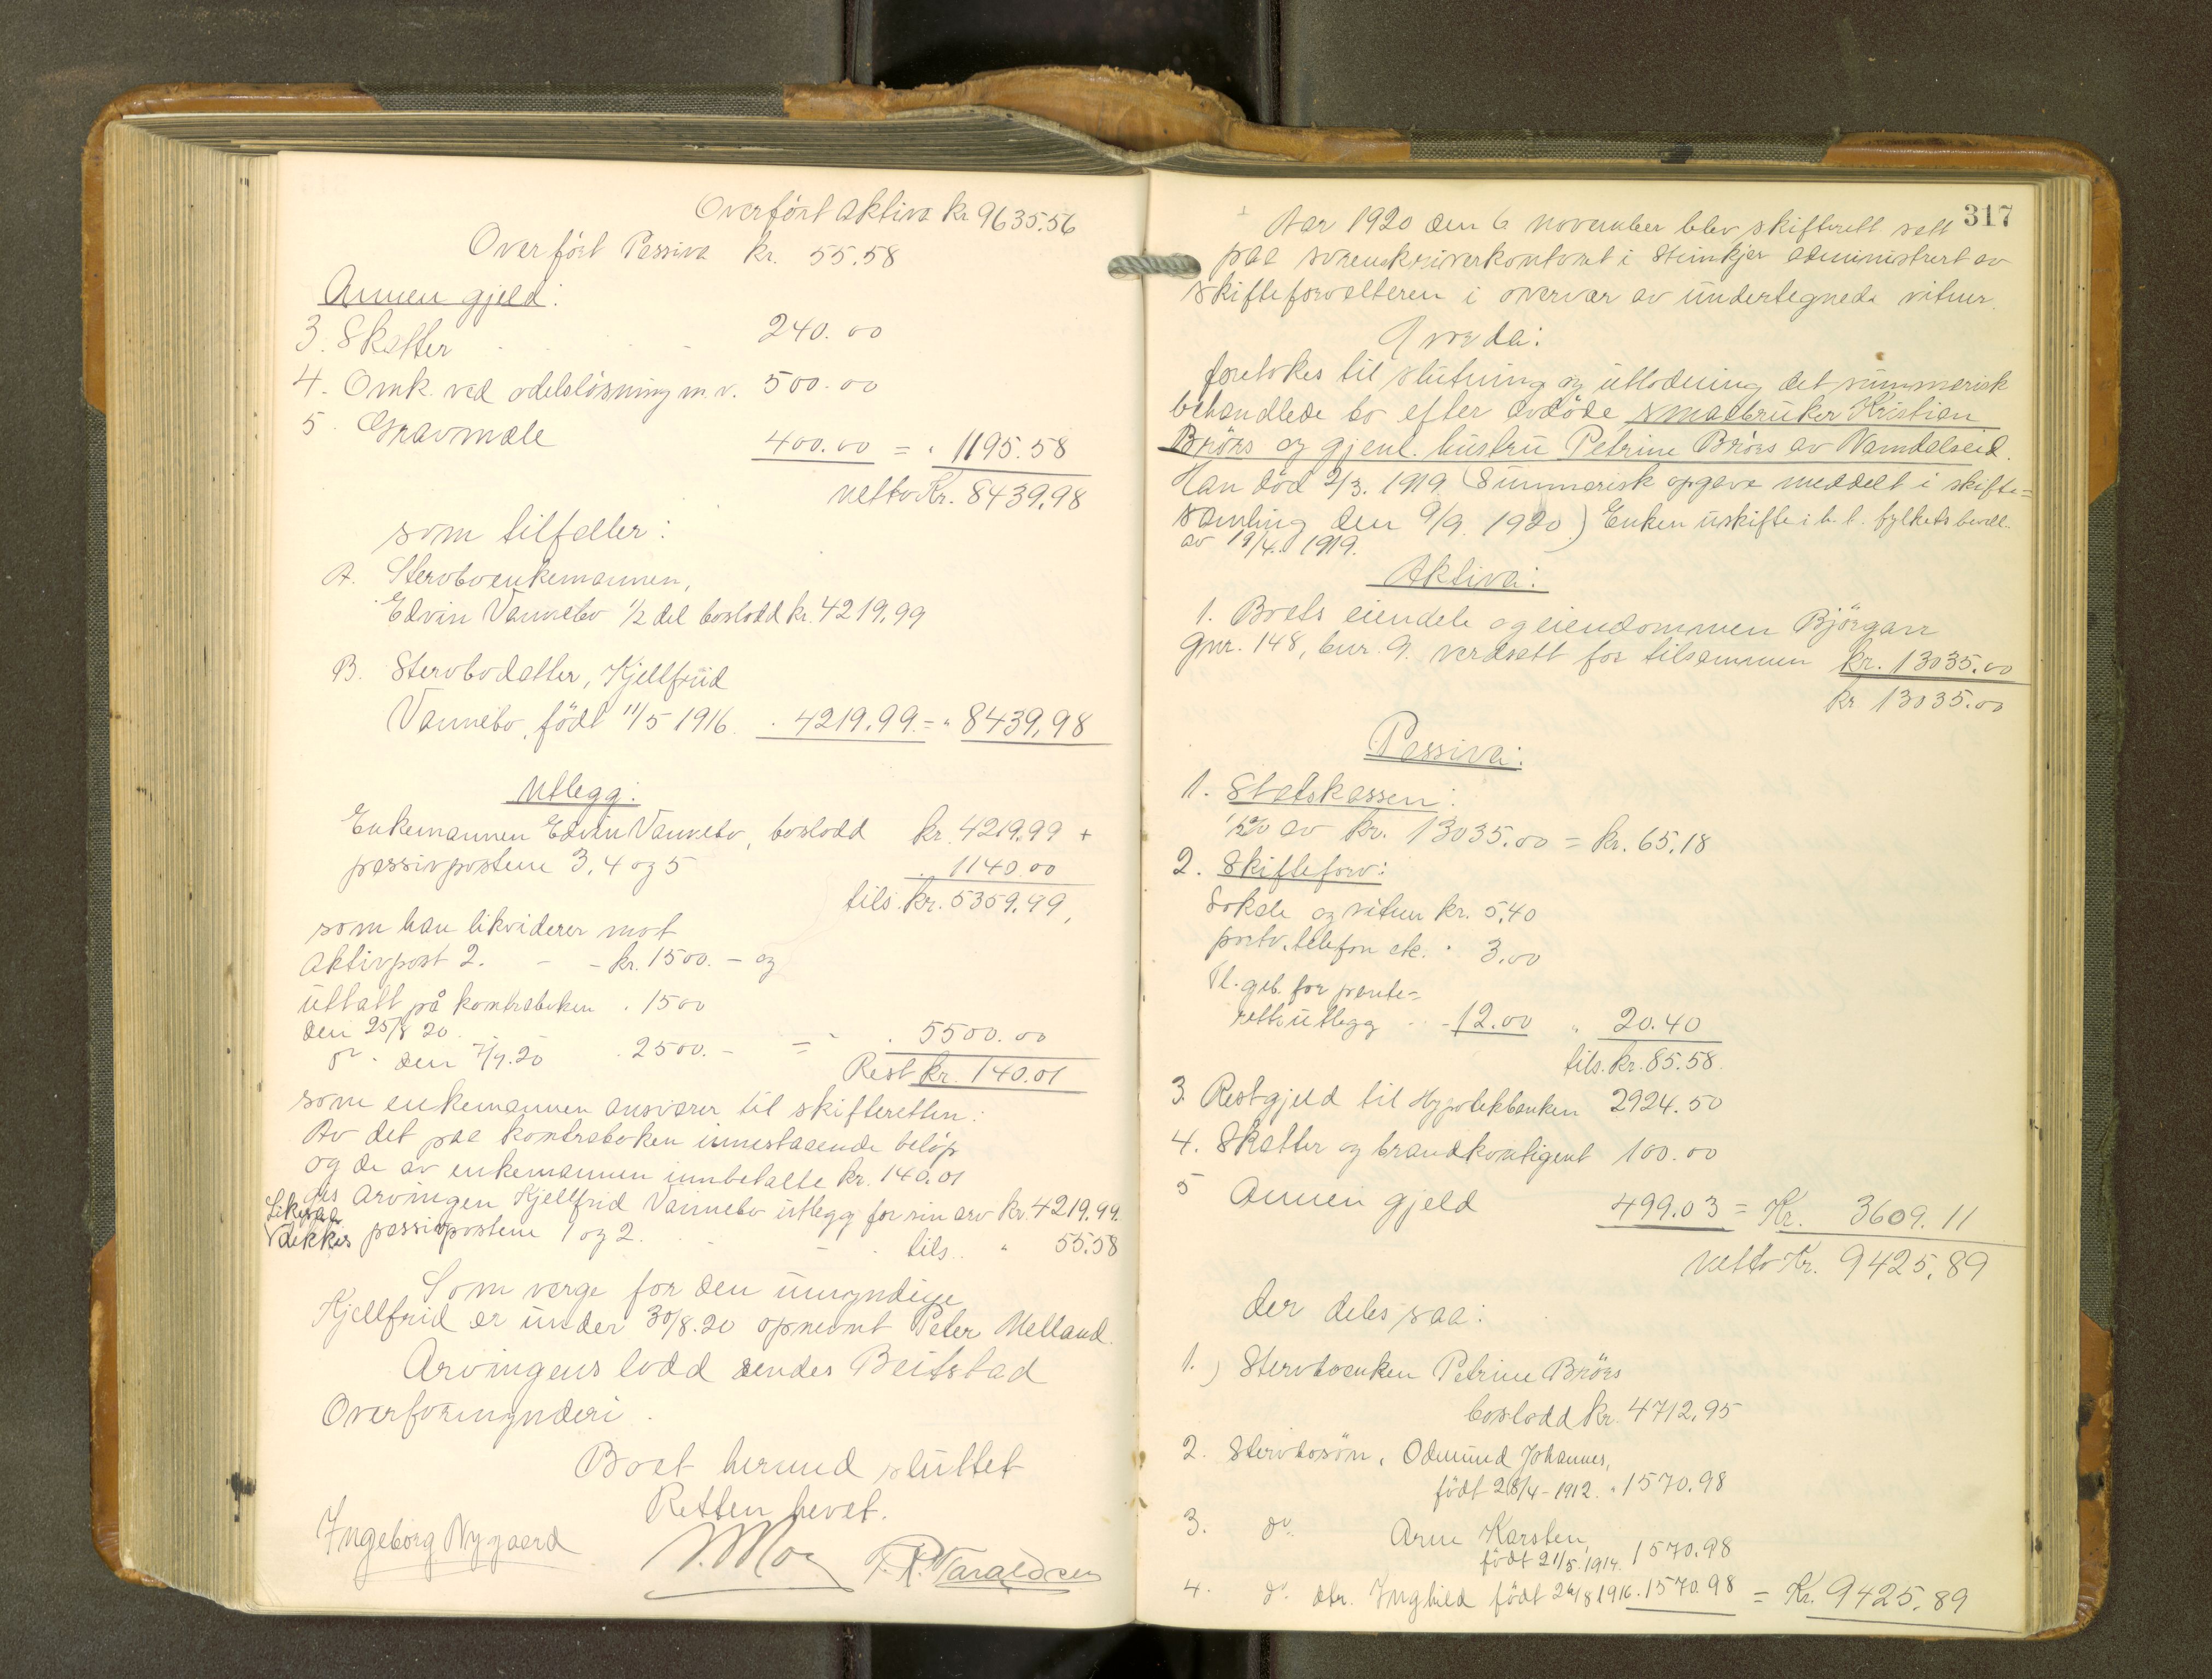 Overført aktiva kr. 9635.56
Overført Passiva kr. 55.58
Annen gjeld:
3. Skatter - - - 240.00
4. Omk. ved odelsløsning m. v. 500.00
5. Gravmæle 400.00 = " 1195.58
netto Kr. 8439.98
som tilfaller:
A. Stervboenkemannen,
Edvin Vannebo 1/2 del boslodd kr. 4219.99
B. Stervbodatter, Kjellfrid
Vannebo, født 11/5 1916. . 4219.99 = " 8439.98
Utlegg:
Enkemannen Edvin Vannebo, boslodd kr. 4219.99 +
passivpostene 3, 4 og 5 . 1140.00
tils. kr. 5359.99,
som han likviderer mot
Aktivpost 2. - - kr. 1500. - og
uttatt på kontraboken . 1500
den 25/8 20.
do. den 7/9.20 . 2500. - = . 5500.00
Rest kr. 140.01
som enkemannen ansvarer til skifteretten.
Av det paa kontraboken innestaaende beløp
og de av enkemannen innbetalte kr. 140.01
gis arvingen Kjellfrid Vannebo utlegg for sin arv kr. 4219.99.
Likesaa
dekkes passivpostene 1 og 2. - - tils. . " 55.58
Som verge for den umyndige
Kjellfrid er under 30/8.20 opnevnt Peter Melland.
Arvingens lodd sendes Beitstad
Overformynderi.
Boet hermed sluttet
Retten hevet.
Ingeborg Nygaard Moe Taraldsen
317
Aar 1920 den 6 november blev skifterett satt
paa sorenskriverkontoret i Steinkjer administrert av
skifteforvalteren i overvær av undertegnede vitner.
Hvorda:
foretokes til slutning og utlodning det summarisk
behandlede bo efter avdøde smaabruker Kristian
Brørs og gjenl. hustru Petrine Brørs av Namdalseid.
Han død 2/3. 1919. (Summarisk opgave meddelt i skifte-
samling den 9/9. 1920.) Enken uskifte i h. t. fylkets bevill.
av 19/4. 1919.
Aktiva:
1. Boets eiendele og eiendommen Bjørgan
gnr. 148, bnr. 9. verdsatt for tilsammen kr. 13035.00
kr. 13035.00
Passiva:
1. Statskassen:
1/2% av kr. 13035.00 = kr. 65.18
2. Skifteforv:
Lokale og vitner kr. 5.40
porto, telefon etc. " 3.00
Tl. geb. for pante-
rettsutlegg . - 12.00 " 20.40
tils. kr. 85.58.
3. Restgjeld til Hypotekbanken 2924.50
4. Skatter og brandkontigent 100.00
5 Annen gjeld 499.03 = Kr. 3609.11
netto Kr. 9425.89
der deles saa:
1.) Stervboenken Petrine Brørs
boslodd kr. 4712.95
2. Stervbosøn, Odmund Johannes,
født 28/4 - 1912. " 1570.98
3. do. Arne Karsten,
født 21/5. 1914. 1570.98
4. do. dtr. Inghild født 26/8 1916. 1570.98 = Kr. 9425.89